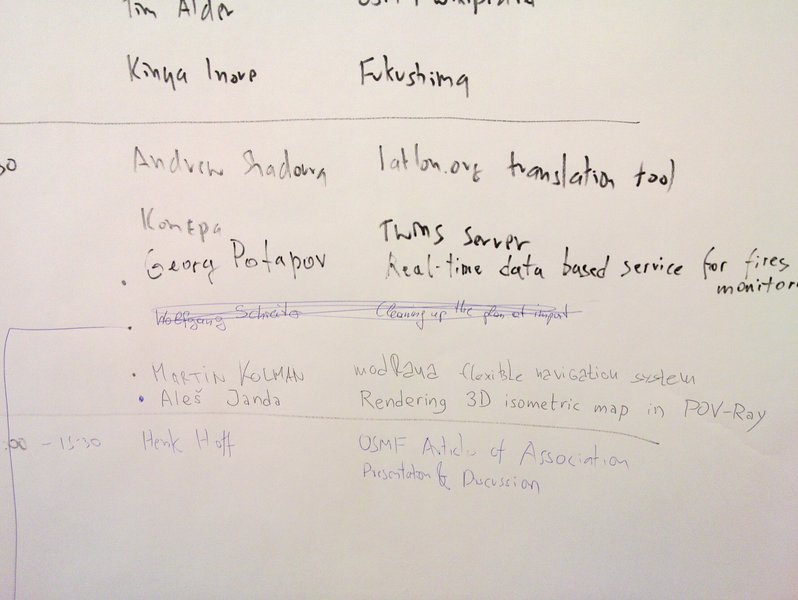 Tim Alder
Kinya Inoue Fukushima
30 Andrew Shadoura latlon.org translation tool
Komzpa TWMS server
Georg Potapov Real-time data based service for fires
monitor
Wolfgang Cleaning up the plan.at import
MARTIN KOLMAN modRana flexible navigation system
Aleš Janda Rendering 3D isometric map in POV-Ray
:00 - 15:30 Henk Hoff OSMF Article of Association
Presentation & Discussion